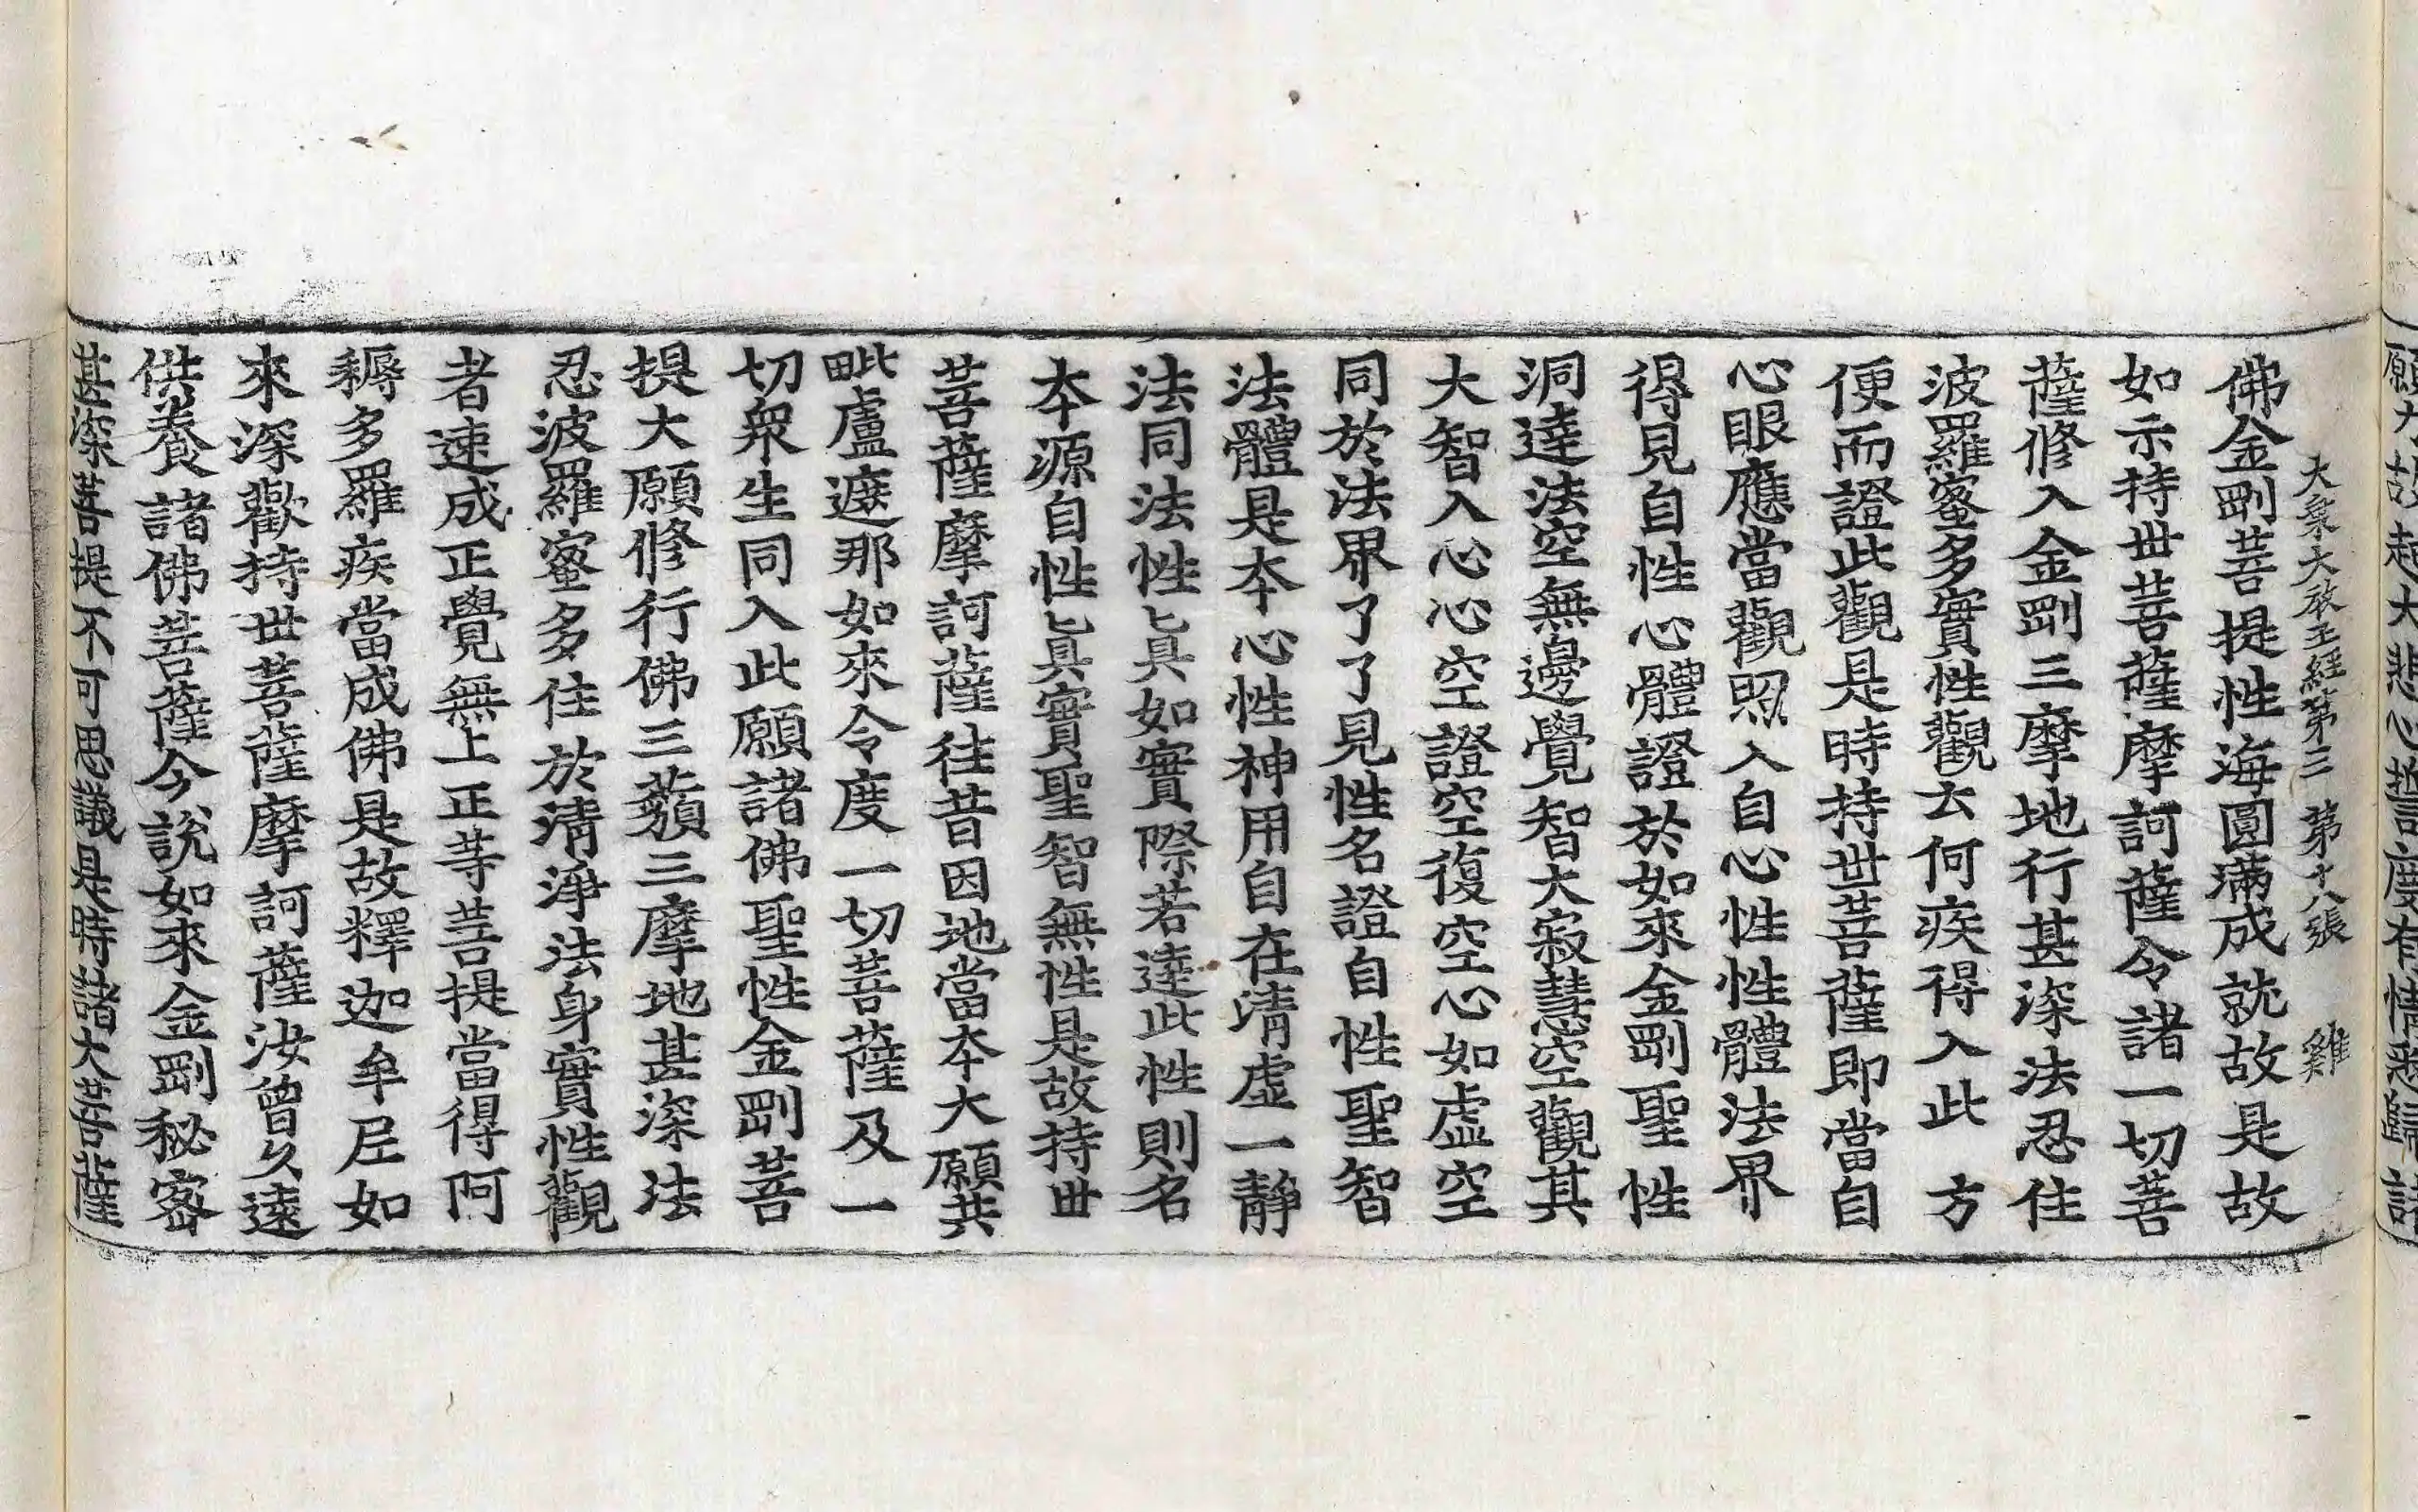 大乗大教王經第三 第十八張 雞
佛金剛菩提性海圓滿成就故是故
如示持世菩薩摩訶薩令諸一切菩
薩修入金剛三摩地行甚深法忍住
波羅蜜多實性觀云何疾得入此方
便而證此觀是時持世菩薩即當自
心眼應當觀照入自心性性體法界
得見自性心體證於如來金剛聖性
洞達法空無邊覺智大寂慧空觀其
大智入心心空證空復空心如虛空
同於法界了了見性名證自性聖智
法體是本心性神用自在清虛一靜
法同法性眞如實際若達此性則名
本源自性眞實聖智無性是故持世
菩薩摩訶薩往昔因地當本大願共
毗盧遮那如來令度一切菩薩及一
切衆生同入此願諸佛聖性金剛菩
提大願修行佛三藐三摩地甚深法
忍波羅蜜多住於清淨法身實性觀
者速成正覺無上正等菩提當得阿
耨多羅疾當成佛是故釋迦牟尼如
來深歡持世菩薩摩訶薩汝曾久遠
供養諸佛菩薩今說如來金剛秘密
甚深菩提不可思議是時諸大菩薩